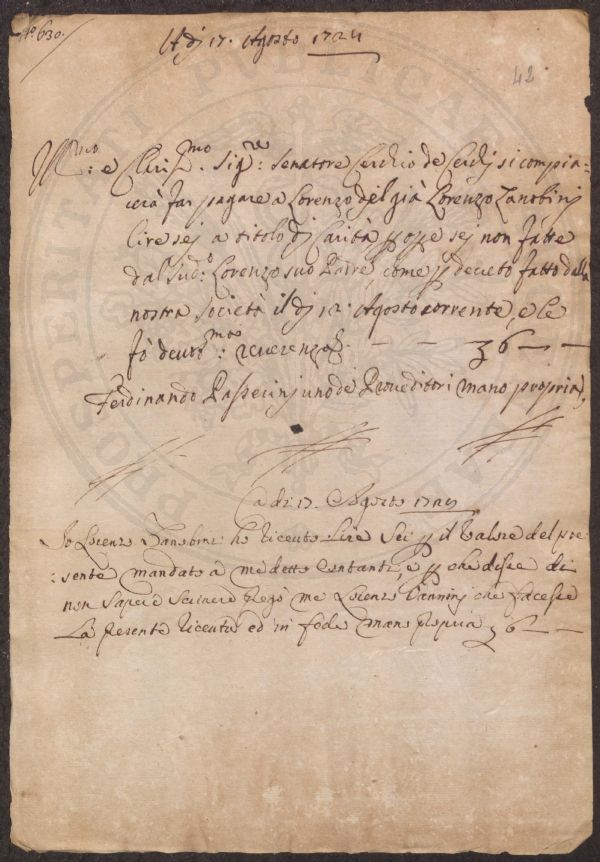 N.º 630.
A dj 17. Agosto 1724
42
Ill.mo e Clariss.mo Sig.re Senatore Cerchio de Cerchj si compia=
cerà far pagare a Lorenzo del già Lorenzo Zanobinj
lire sej a titolo dj Carità p opre sej non fatte
dal sud.o Lorenzo suo Padre, come p decreto fatto dalla
nostra società il dj 12. Agosto corrente, e le
fò devot.mo reverenza 6 — —
Ferdinando Passerinj uno de Proveditori mano propria
A di 17. Agosto 1724
Io Lorenzo Zanobini ho riceuto lire Sei p il Valore del pre
:sente mandato a me detto Contanti, e p che disse di
non sapere scrivere pregò me Lorenzo Vanninj che facesse
La presente ricevuta ed in fede mano propria 6 — —
PROSPERITATI PUBLICAE